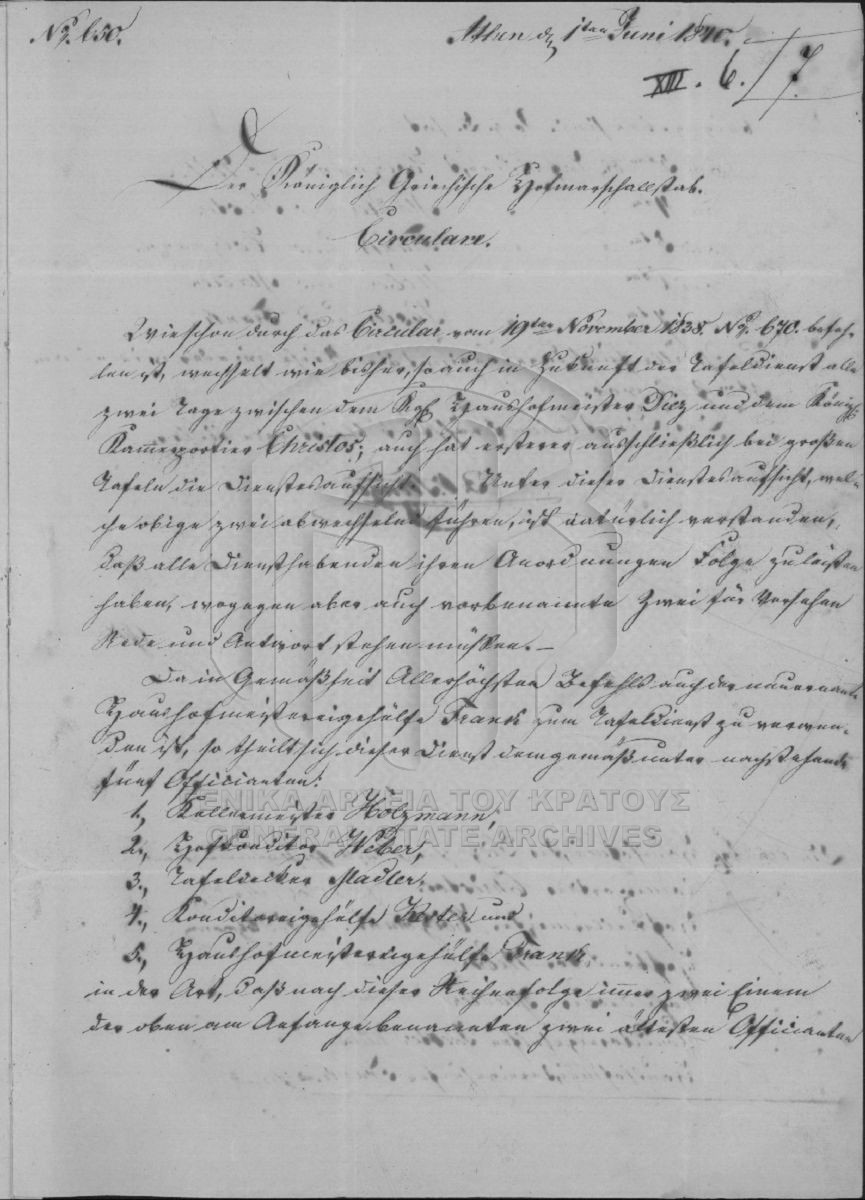 No. 650.
Athen den 1ten Juni 1840.
XIII. 6. / 7.
Der Königlich Griechische Hofmarschallstab.
Circulare.
Wie schon durch das Circular vom 19ten November 1838. No. 670. befoh-
len ist, wechselt wie bisher, so auch in Zukunft der Tafeldienst alle
zwei Tage zwischen dem Kgl. Haushofmeister Diez und dem Königl.
Kammerportier Christos; auch hat ersterer ausschließlich bei großen
Tafeln die Dienstesaufsicht. Unter dieser Dienstesaufsicht, wel-
che obige zwei abwechselnd führen, ist natürlich verstanden,
daß alle Diensthabenden ihren Anordnungen Folge zu leisten
haben, wogegen aber auch vorbenannte Zwei für Versehen
Rede und Antwort stehen müssen. —
Da in Gemäßheit Allerhöchsten Befehls auch der neuernannte
Haushofmeistereigehülfe Frank zum Tafeldienst zu verwen-
den ist, so theilt sich dieser Dienst demgemäß unter nachstehende
fünf Officianten:
1., Kellermeister Holzmann,
2., Hofkonditor Weber,
3., Tafeldecker Madler,
4., Konditoreigehülfe und
5., Haushofmeistereigehülfe Frank,
in der Art, daß nach dieser Reihenfolge immer zwei Einem
der oben am Anfange benannten zwei ältesten Officianten
ΓΕΝΙΚΑ ΑΡΧΕΙΑ ΤΟΥ ΚΡΑΤΟΥΣ
GENERAL STATE ARCHIVES